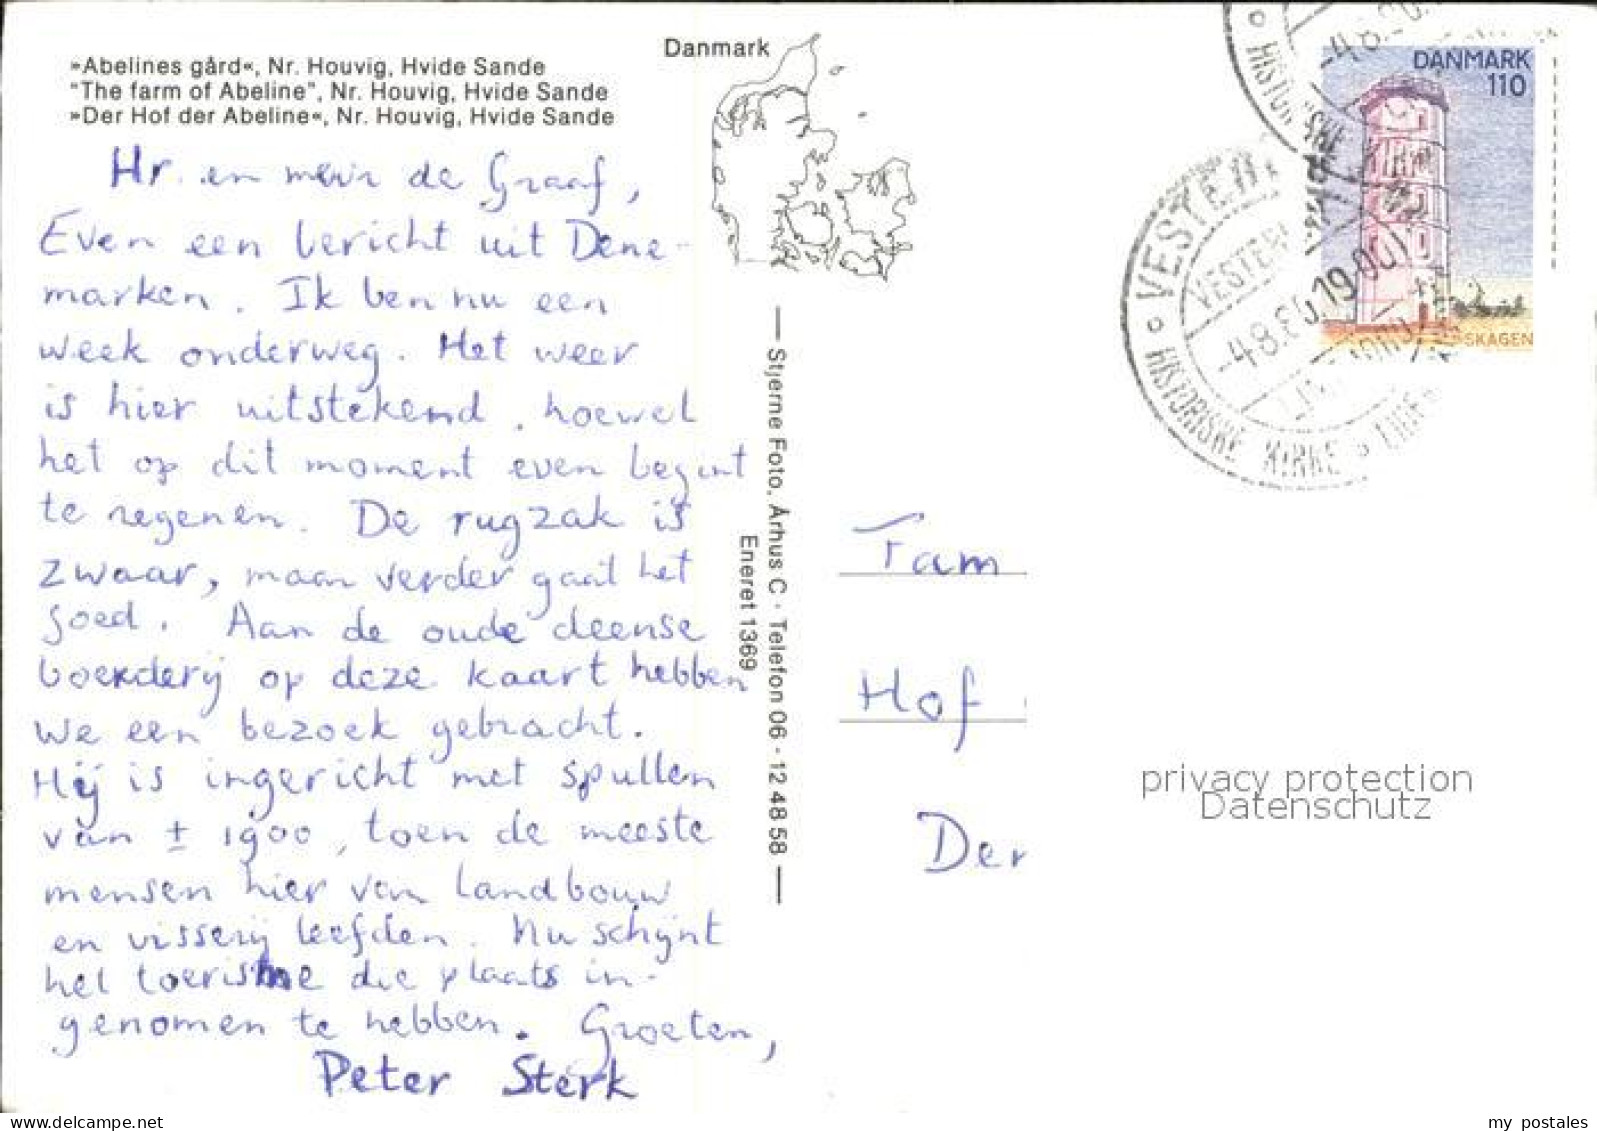 »Abelines gård«, Nr. Houvig, Hvide Sande
"The farm of Abeline", Nr. Houvig, Hvide Sande
»Der Hof der Abeline«, Nr. Houvig, Hvide Sande
Danmark
Hr. en mevr de Graaf,
Even een bericht uit Dene-
marken. Ik ben nu een
week onderweg. Het weer
is hier uitstekend, hoewel
het op dit moment even begint
te regenen. De rugzak is
zwaar, maar verder gaat het
goed. Aan de oude deense
boerderij op deze kaart hebben
we een bezoek gebracht.
Hij is ingericht met spullen
van ± 1900, toen de meeste
mensen hier van landbouw
en visserij leefden. Nu schijnt
het toerisme die plaats in-
genomen te hebben. Groeten,
Peter Sterk
— Stjerne Foto, Århus C · Telefon 06 - 12 48 58 —
Eneret 1369
DANMARK
110
SKAGEN
VESTER
-4.8.80.19.00
HISTORISKE KIRKE
Fam
Hof
Der
privacy protection
Datenschutz
delcampe.net
my_postales